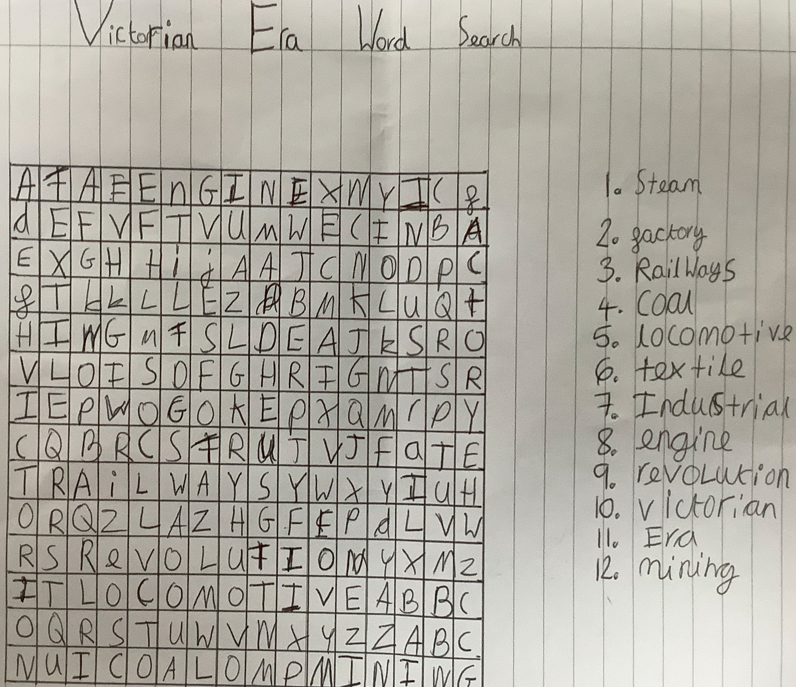 Victorian Era Word Search
A T A E E n G I N E X M Y I C g
d E F V F T V U M W E C I N B A
E X G H H i j A A J C N O D P C
g T k k L L E Z A B M K L U Q t
H I W G m F S L D E A J k S R O
V L O I S D F G H R I G N T S R
I E P W O G O K E P X Q M r P Y
C Q B R C S T R U J V J F a T E
T R A i L W A Y S Y W X Y I U H
O R Q Z L A Z H G F E P d L V W
R S R e V O L U T I O N Y X M Z
I T L O C O M O T I V E A B B C
O Q R S T U W V N X Y Z Z A B C
N U I C O A L O M P M I N I N G
1. Steam
2. factory
3. RailWays
4. Coal
5. locomotive
6. textile
7. Industrial
8. engine
9. revolution
10. victorian
11. Era
12. mining